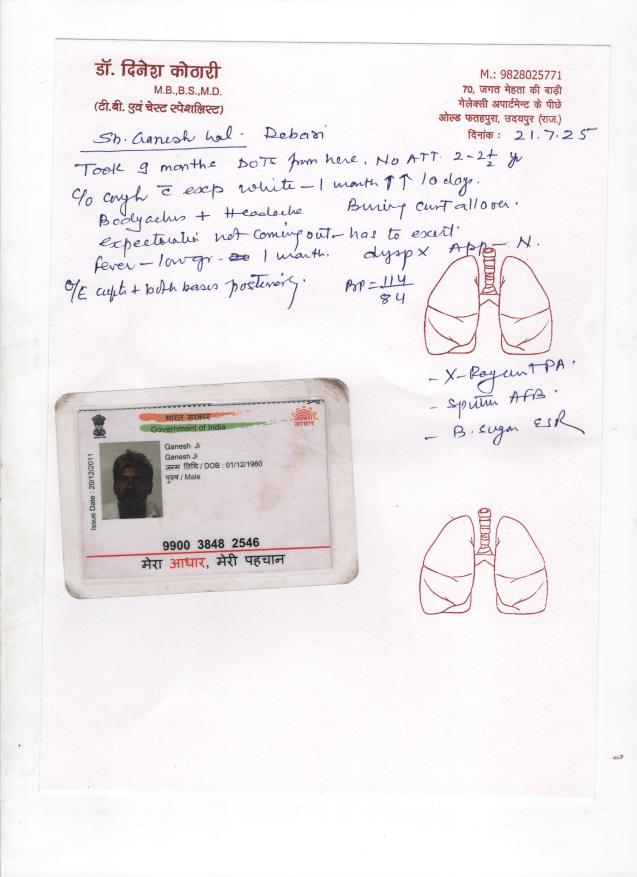 डॉ. दिनेश कोठारी
M.B.,B.S.,M.D.
(टी.बी. एवं चेस्ट स्पेशलिस्ट)
M.: 9828025771
70, जगत मेहता की बाड़ी
गेलेक्सी अपार्टमेन्ट के पीछे
ओल्ड फतहपुरा, उदयपुर (राज.)
दिनांक : 21.7.25
Sh. Ganesh Lal - Debari
Took 9 months DOTS from here. No ATT 2-2½ yr
c/o cough c̄ exp white - 1 month ↑↑ 10 days.
Bodyaches + Headache allover.
expectoration not coming out - has to exert.
fever - low gr. 1 month. dysp x APP - N.
O/E + both bases posteriorly. BP = 114/84
- X-Ray PA.
- Sputum AFB.
- B. Sugar ESR
भारत सरकार
Government of India
आधार
Issue Date : 20/12/2011
Ganesh Ji
Ganesh Ji
जन्म तिथि / DOB : 01/12/1960
पुरुष / Male
9900 3848 2546
मेरा आधार, मेरी पहचान